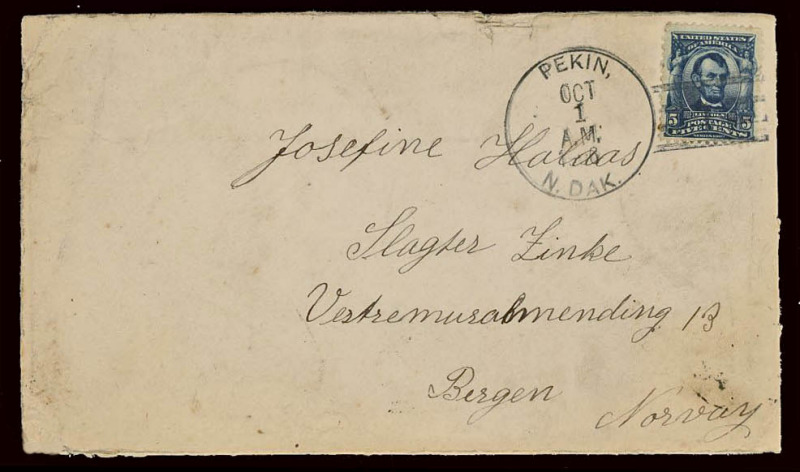 UNITED STATES
OF AMERICA
5 5
POSTAGE
FIVE CENTS
PEKIN,
OCT
1
A.M.
N. DAK.
Josefine
Slagter Zinke
Vestremuralmending 13
Bergen
Norway